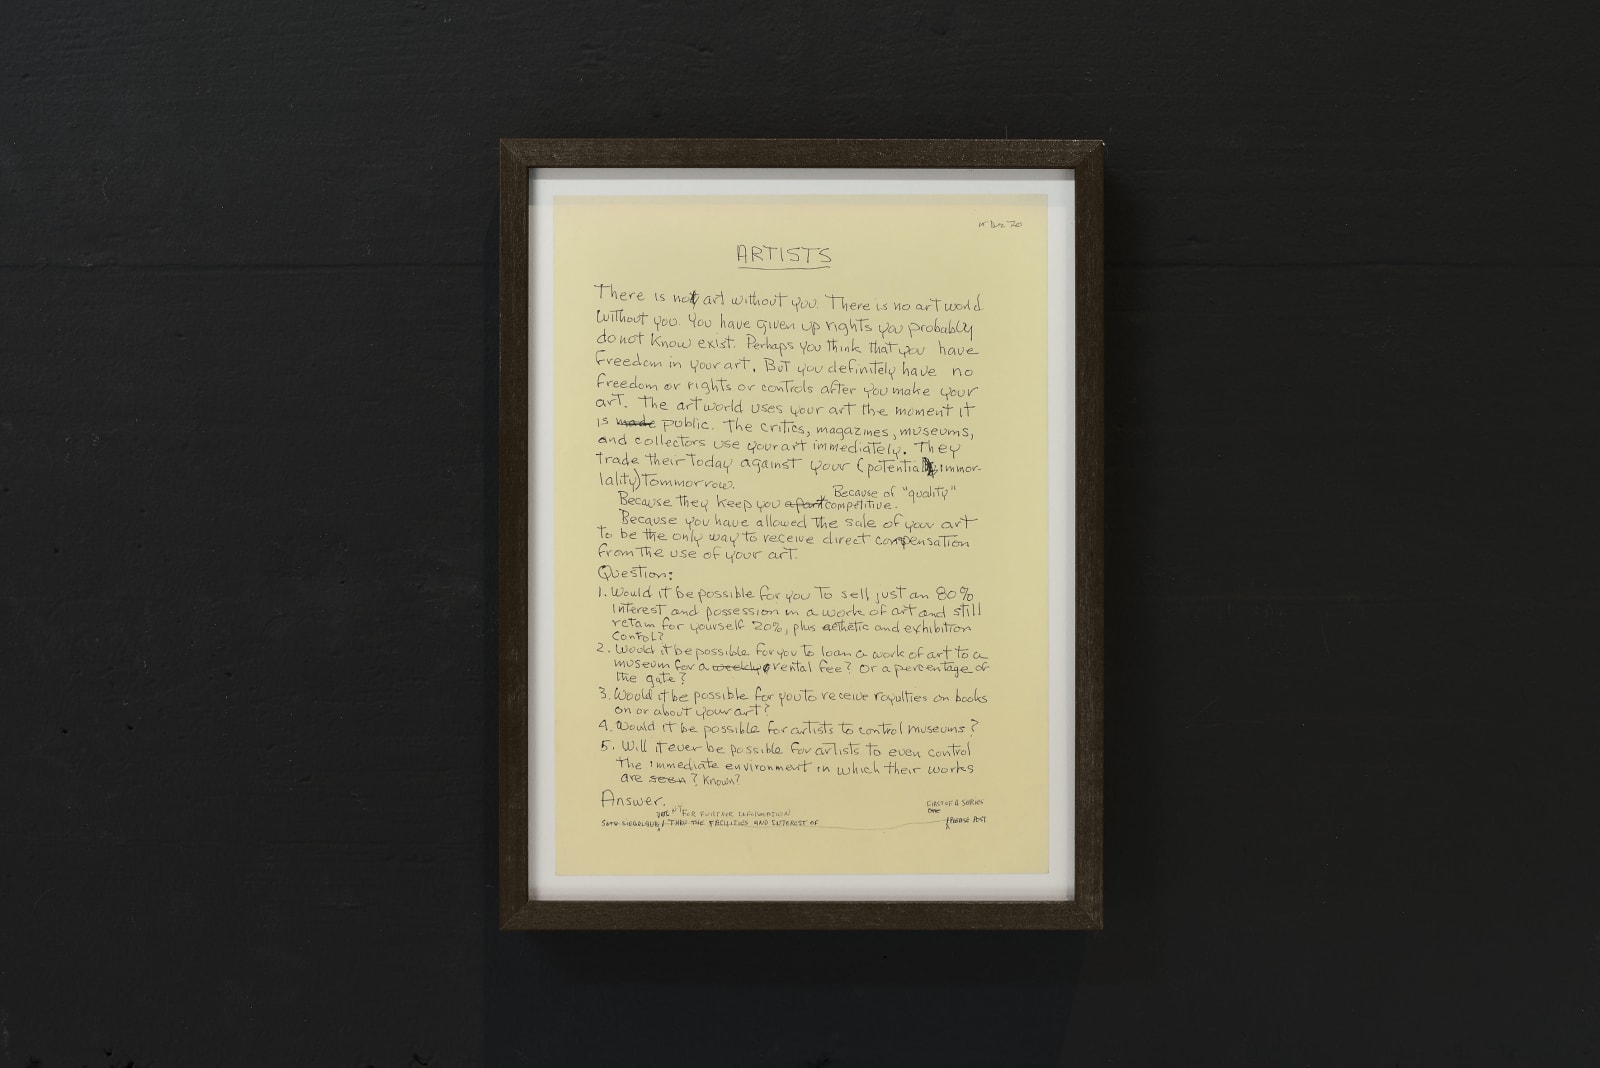 Dec 70
ARTISTS
There is not art without you. There is no art world
without you. You have given up rights you probably
do not know exist. Perhaps you think that you have
freedom in your art. But you definitely have no
freedom or rights or controls after you make your
art. The art world uses your art the moment it
is made public. The critics, magazines, museums,
and collectors use your art immediately. They
trade their today against your (potential immor-
lality) tommorrow.
Because of "quality"
Because they keep you apart competitive.
Because you have allowed the sale of your art
to be the only way to receive direct compensation
from the use of your art.
Question:
1. Would it be possible for you to sell just an 80%
interest and possession in a work of art and still
retain for yourself 20%, plus aethetic and exhibition
control?
2. Would it be possible for you to loan a work of art to a
museum for a weekly rental fee? Or a percentage of
the gate?
3. Would it be possible for you to receive royulties on books
on or about your art?
4. Would it be possible for artists to control museums?
5. Will it ever be possible for artists to even control
the immediate environment in which their works
are seen? Known?
Answer.
FOR FURTHER INFORMATION
FIRST OF A SERIES
ONE
SETH SIEGELAUB / THRU THE FACILITIES AND INTEREST OF
PLEASE POST